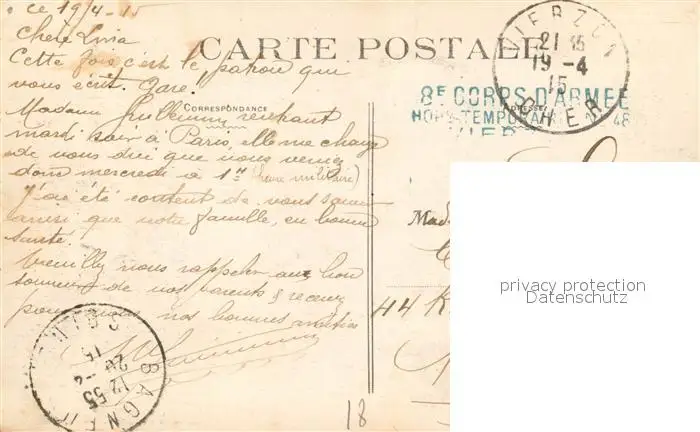 ce 19/4-15
Chère
CARTE POSTALE
Cette fois c'est le patron qui
vous écrit. Gare!
CORRESPONDANCE
Madame Guillemin rentrant
mardi soir à Paris, elle me charge
de vous dire que vous venez
donc mercredi à 1h (heure militaire)
J'ai été content de vous savoir
ainsi que votre famille, en bonne
santé.
Veuillez nous rappeler au bon
souvenir de vos parents & recevez
pour nos bonnes amitiés
VIERZON
21 15
19 -4
15
CHER
8E CORPS D'ARMÉE
ADRESSE
HOP. TEMPORAIRE 48
VIER
Mad
44 R
BAGNEUX
12 55
20 -4
15
SEINE
18
privacy protection
Datenschutz